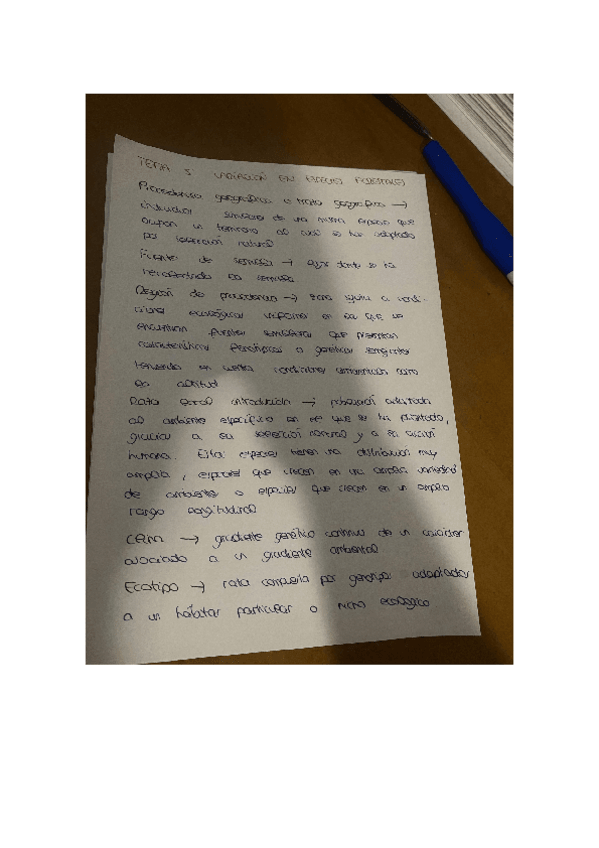 TEMA 5 VARIACIÓN EN ESPECIES FORESTALES
Procedencia geográfica o raza geográfica →
individuos de una misma especie que
ocupan un territorio al cual se han adaptado
por selección natural
Fuente de semilla → lugar donde se ha
recolectado la semilla
Región de procedencia → zona sujeta a condi-
ciones ecológicas uniformes en la que se
encuentran fuentes semilleras que presentan
características fenotípicas o genéticas
teniendo en cuenta condiciones como
la altitud
Raza local introducción → población adaptada
al ambiente específico en el que se ha plantado,
gracias a su selección natural y a la acción
humana. Estas especies tienen una distribución muy
amplia, especies que crecen en una amplia variedad
de ambientes o especies que crecen en un amplio
rango longitudinal
CLINA → gradiente genético continuo de un carácter
asociado a un gradiente ambiental
Ecotipo → raza compuesta por genotipos adaptados
a un hábitat particular o nicho ecológico